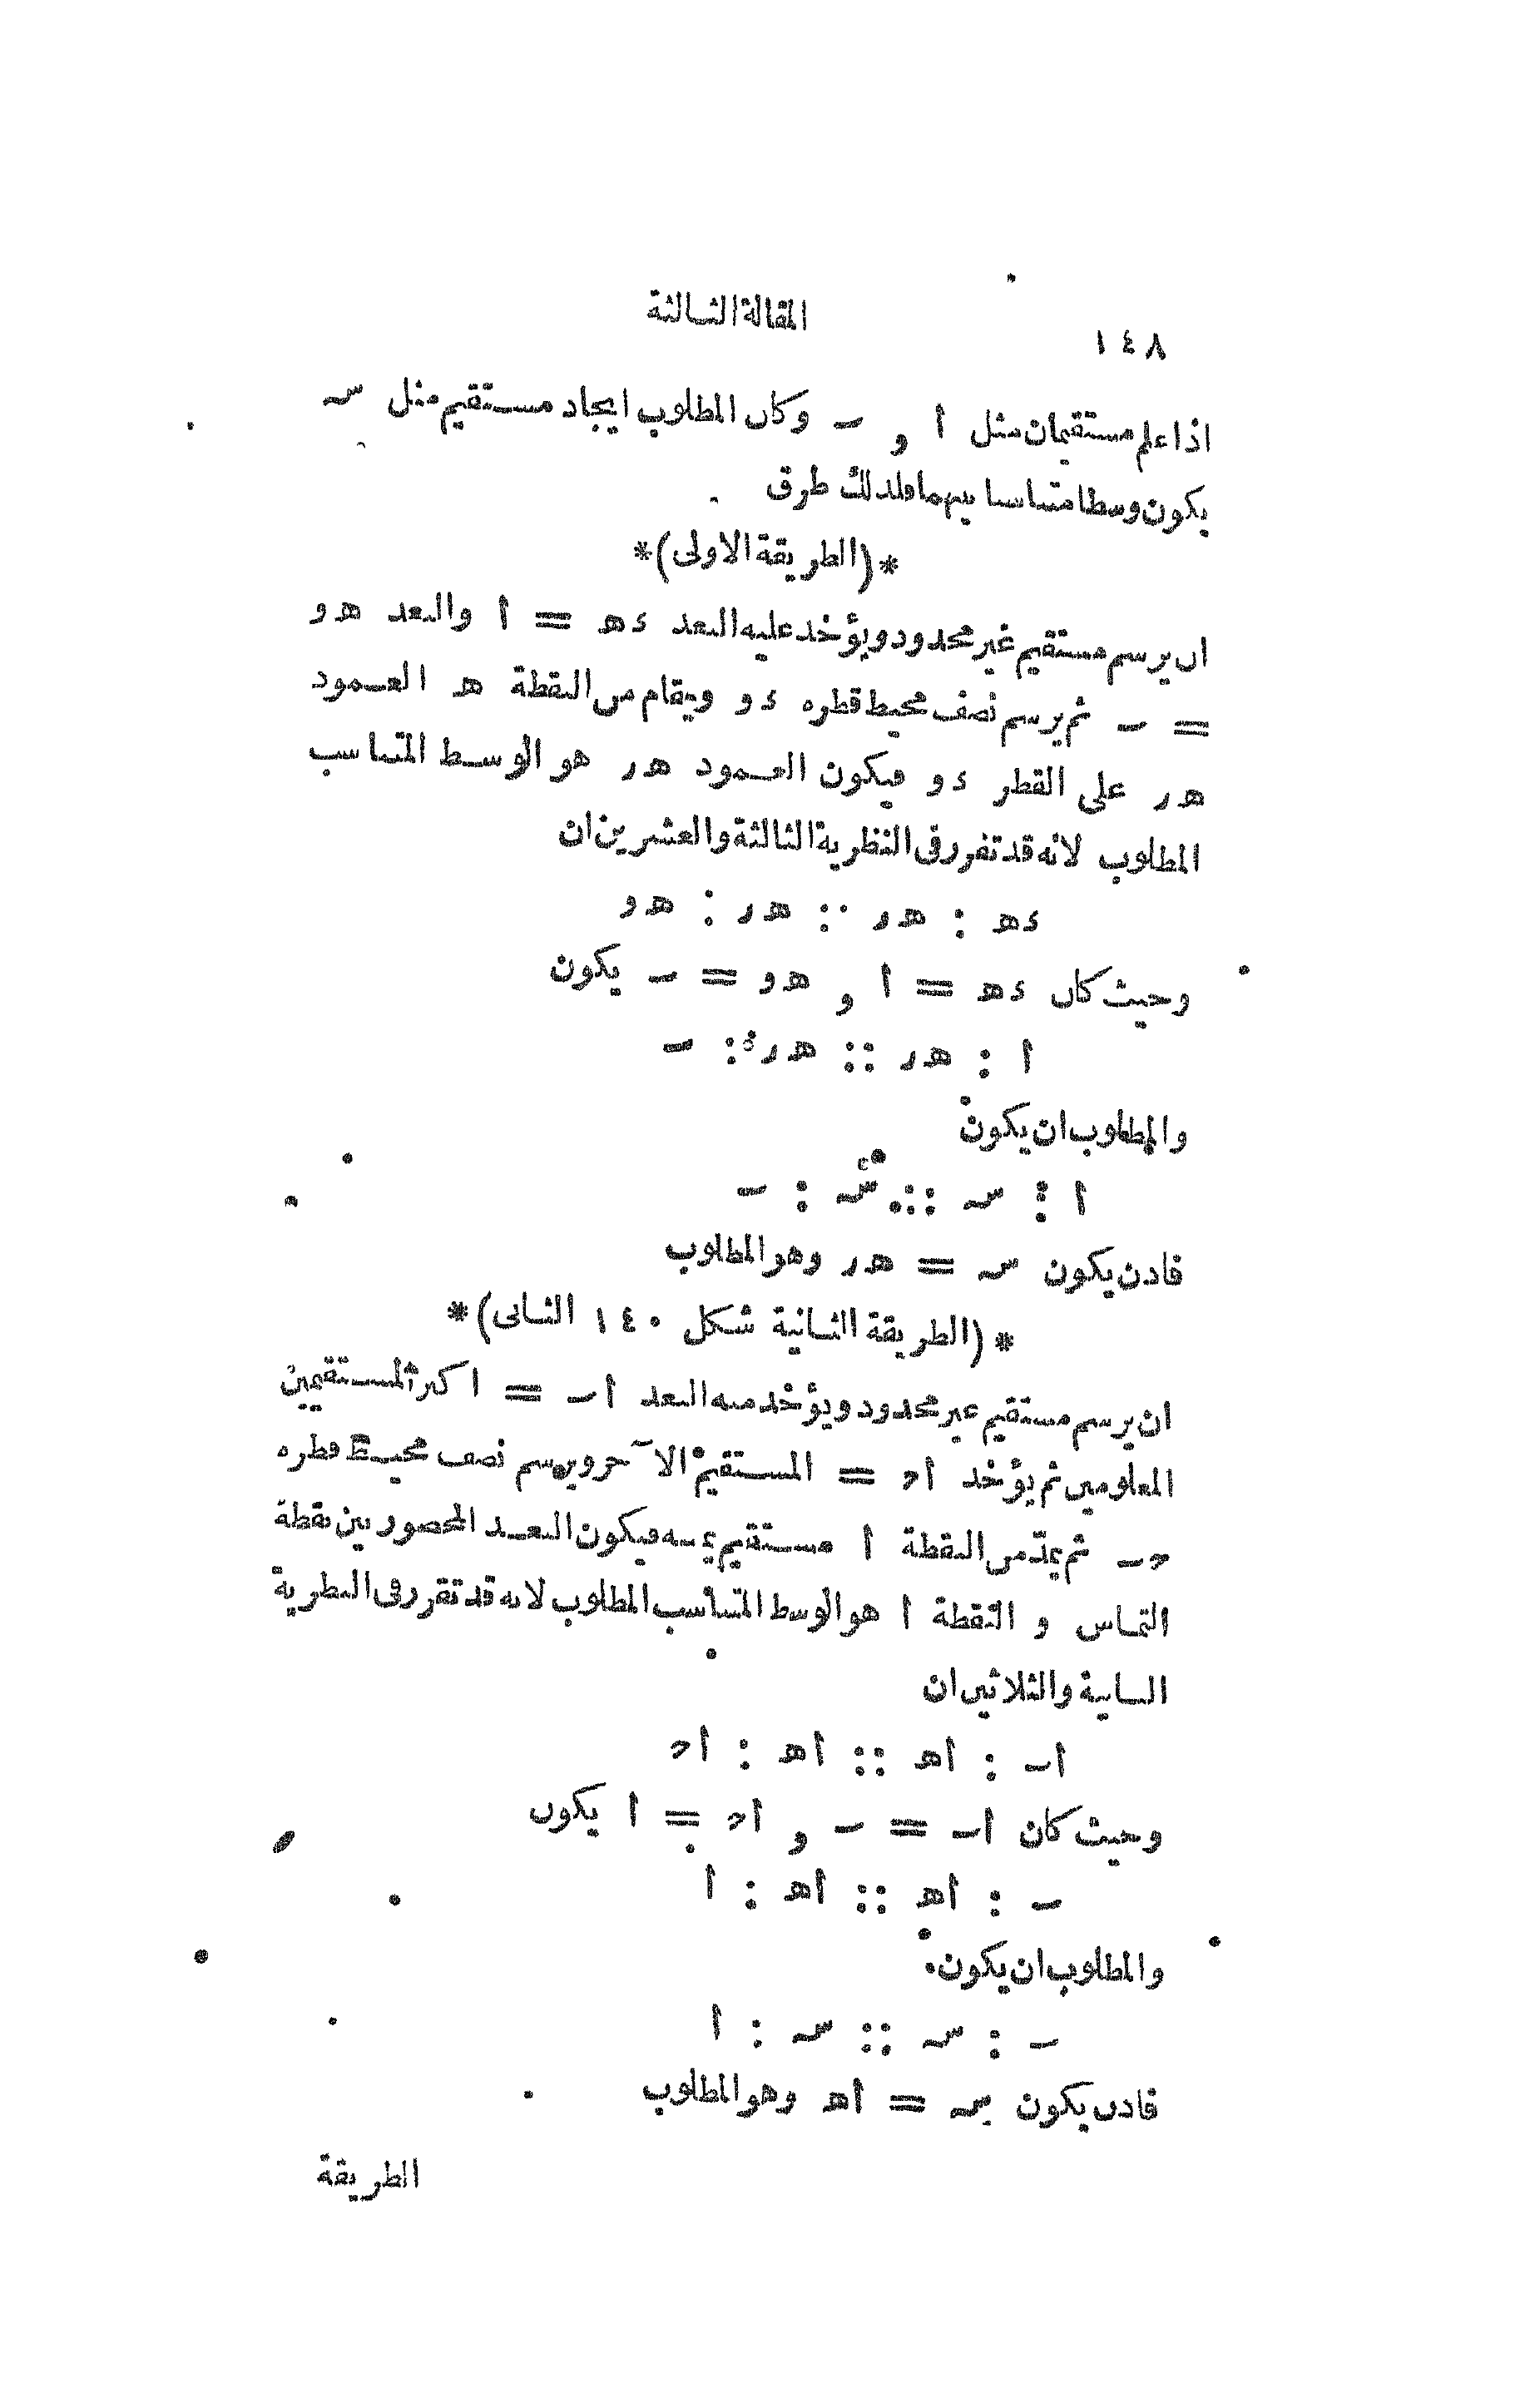 ١٤٨
المقالة الثالثة
اذا علم مستقيمان مثل ا و ـ وكان المطلوب ايجاد مستقيم مثل سہ
يكون وسطا متناسبا بينهما فلذلك طرق
*(الطريقة الاولى)*
ان يرسم مستقيم غير محدود ويؤخذ عليه البعد ءھ = ا والبعد ھو
= ـ ثم يرسم نصف محيط قطره ءو ويقام من النقطة ھ العمود
ھر على القطر ءو فيكون العمود ھر هو الوسط المتناسب
المطلوب لانه قد تقرر في النظرية الثالثة والعشرين ان
ءھ : ھر :: ھر : ھو
وحيث كان ءھ = ا و ھو = ـ يكون
ا : ھر :: ھر : ـ
والمطلوب ان يكون
ا : سہ :: سہ : ـ
فاذن يكون سہ = ھر وهو المطلوب
*(الطريقة الثانية شكل ١٤٠ الثاني)*
ان يرسم مستقيم غير محدود ويؤخذ منه البعد اـ = اكبر المستقيمين
المعلومين ثم يؤخذ اح = المستقيم الآخر ويرسم نصف محيط قطره
حـ ثم يمدّ من النقطة ا مستقيم يمسه فيكون البعد المحصور بين نقطة
التماس و النقطة ا هو الوسط المتناسب المطلوب لانه قد تقرر في النظرية
الثانية والثلاثين ان
اـ : اھ :: اھ : اح
وحيث كان اـ = ـ و اح = ا يكون
ـ : اھ :: اھ : ا
والمطلوب ان يكون
ـ : سہ :: سہ : ا
فاذن يكون سہ = اھ وهو المطلوب
الطريقة